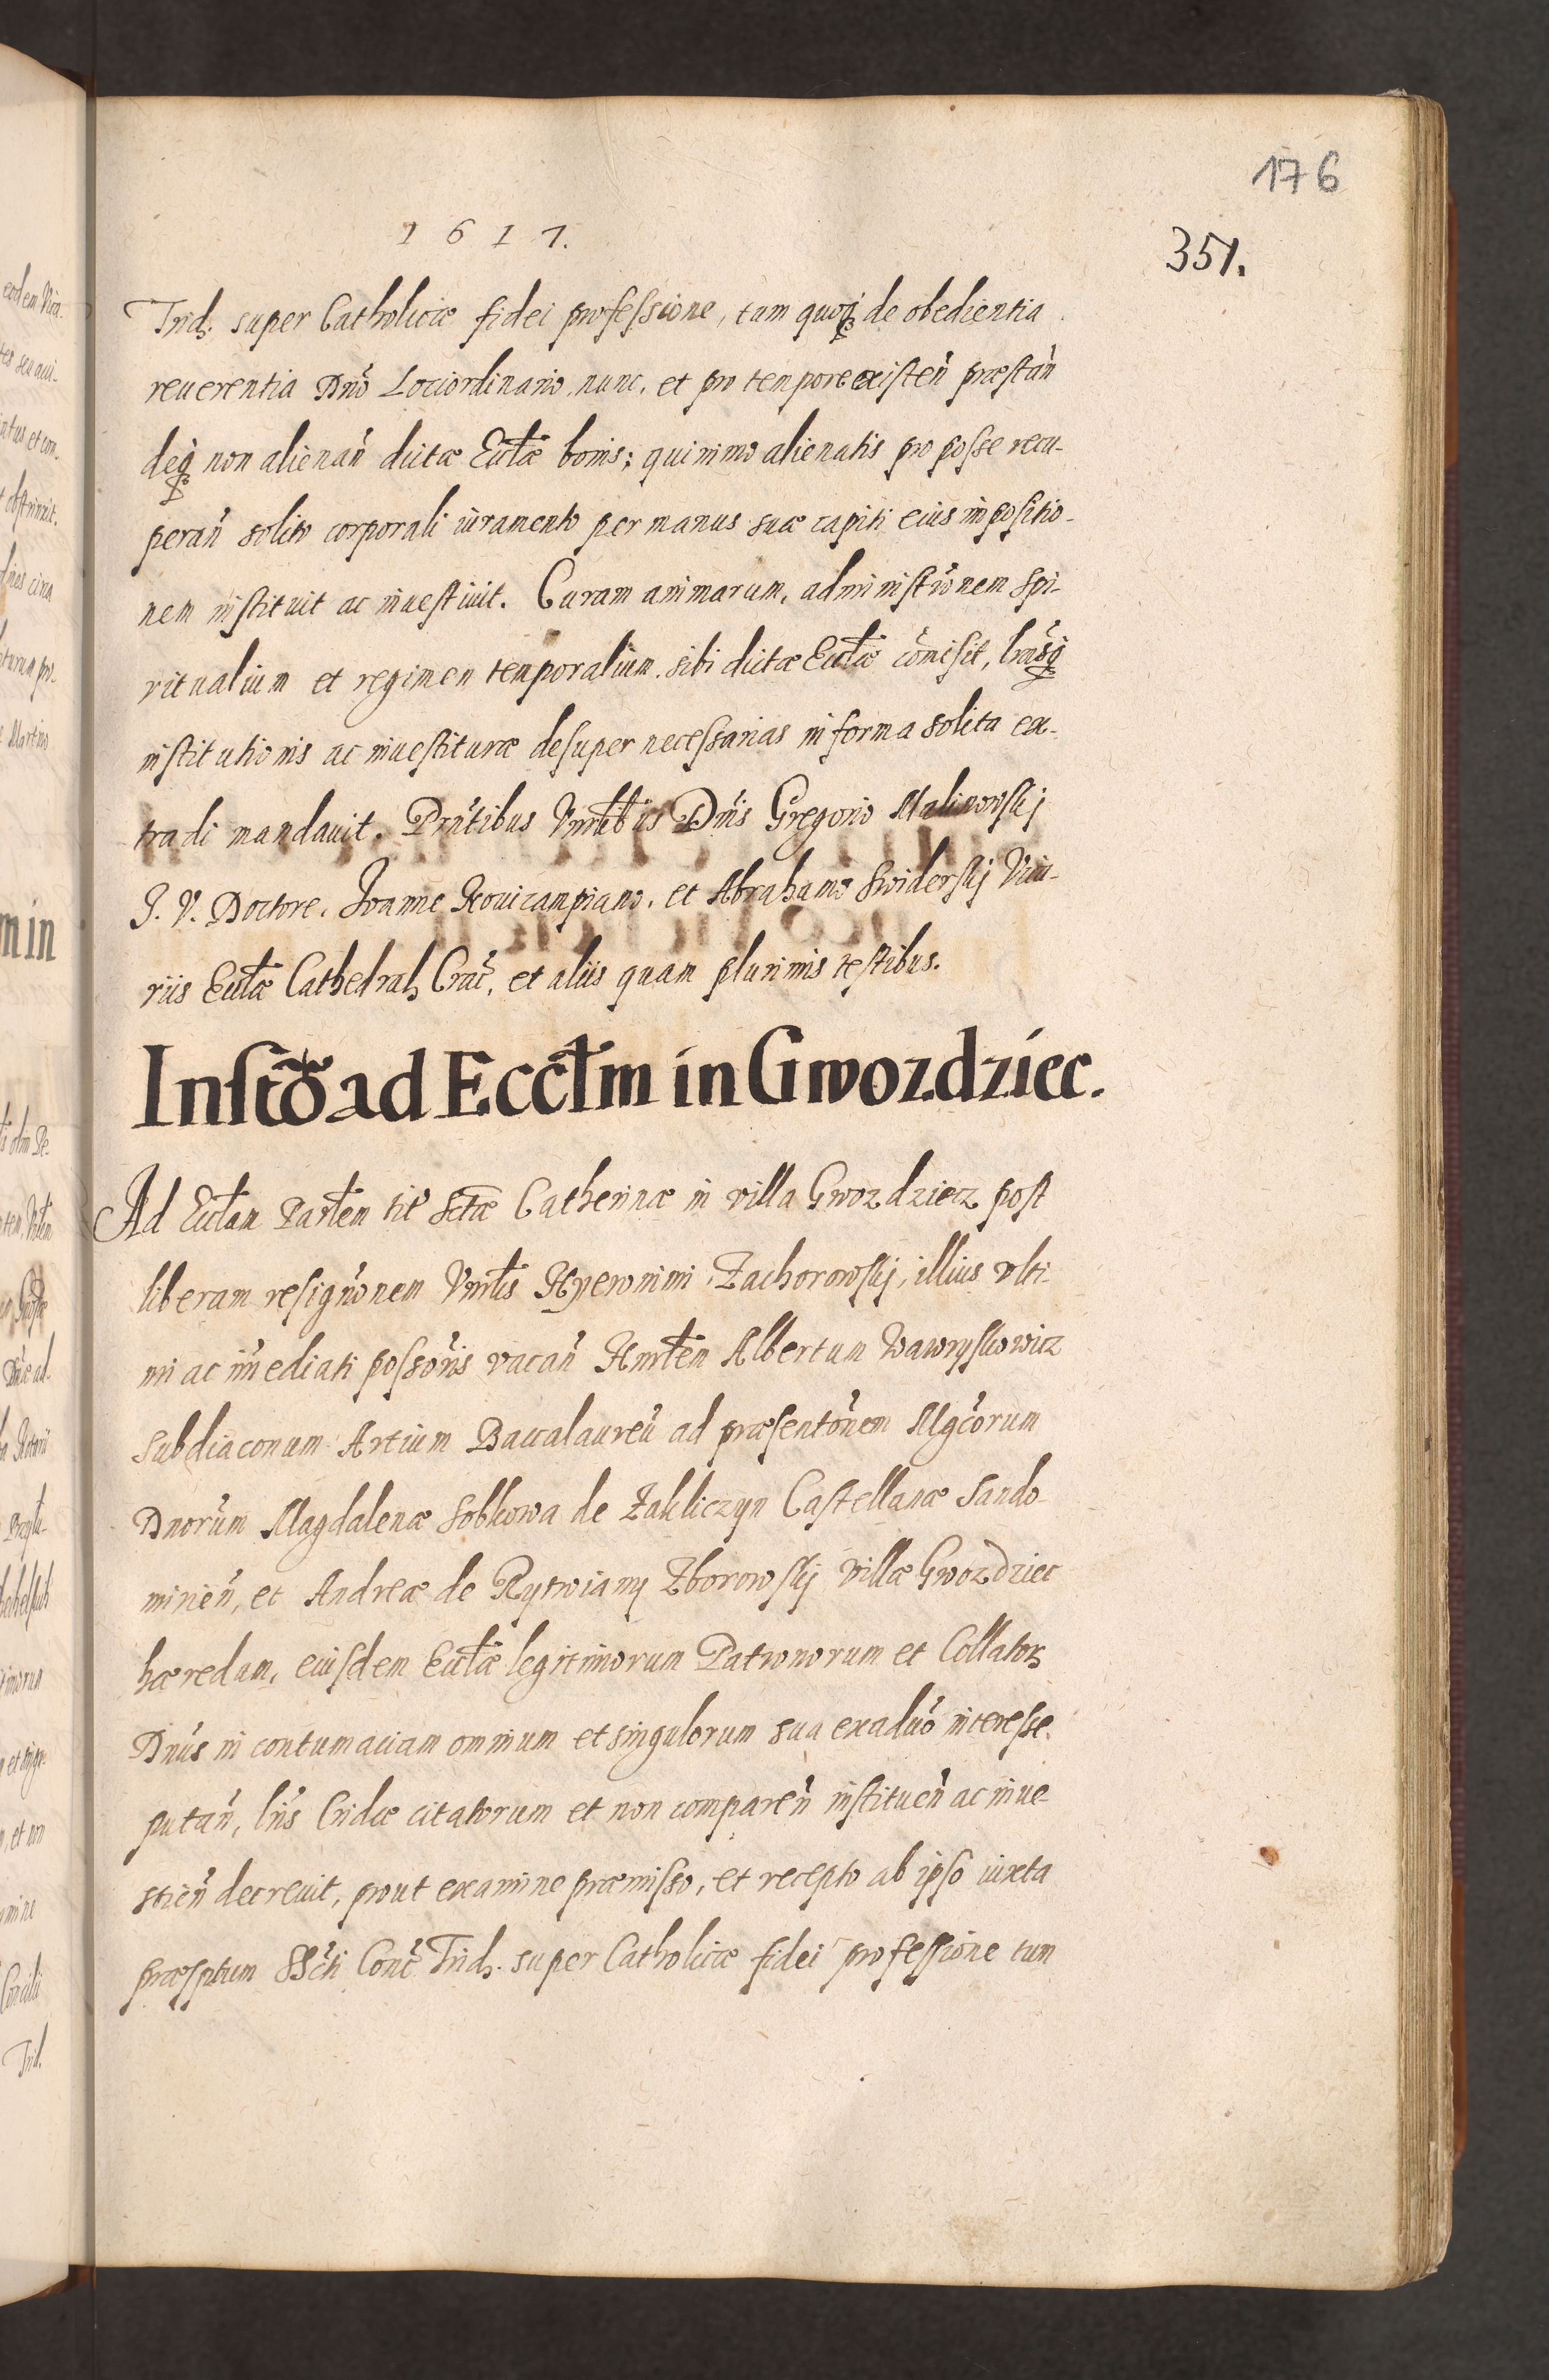 176
1617.
351.
Trid. super Catholicæ fidei professione, tum quoq; de obedientia
reuerentia Dnō Lociordinario, nunc, et pro tempore existeñ præstañ
deq; non alienañ dictæ Eccłæ bonis; quinimo alienatis pro posse recu-
perañ solito corporali iuramento per manus suæ capiti eius impositio-
nem instituit ac inuestiuit. Curam animarum, administrõnem spi-
ritualium et regimen temporalium sibi dictæ Eccłæ cōmisit, lrãsq;
institutionis ac inuestituræ desuper necessarias in forma solita ex-
tradi mandauit. Prñtibus Vnrłibus Dñis Gregorio Malinowskj
J. V. Doctore, Joanne Nouicampiano, et Abrahamo Swiderskj Vica-
riis Eccłæ Cathedral Crac̃, et aliis quam plurimis testibus.
Instõ ad Eccłm in Gwozdziec.
Ad Eccłam Parłem tit̃ Sctæ Catherinæ in villa Gwozdziecz post
liberam resignõnem Vnrłis Hyeronimi Zachorowskj, illius vlti-
mi ac im̃ediati possõris vacañ Hnrłem Albertum Wawryskowicz
subdiaconum Artium Baccalaureũ ad præsentõnem Mgc̃orum
Dnorum Magdalenæ Sobkowa de Zakliczyn Castellanæ Sando-
mirieñ, et Andreæ de Rytwiany Zborowskj villæ Gwozdziec
hæredum, eiusdem Eccłæ legitimorum Patronorum et Collator
Dnũs in contumaciam omnium et singulorum sua exaduõ interesse
putañ, lrĩs Cridæ citatorum et non compareñ institueñ ac inue-
stieñ decreuit, prout examine præmisso, et recepto ab ipso iuxta
præsptum SSc̃ti Conc̃ Trid. super Catholicæ fidei professione tum